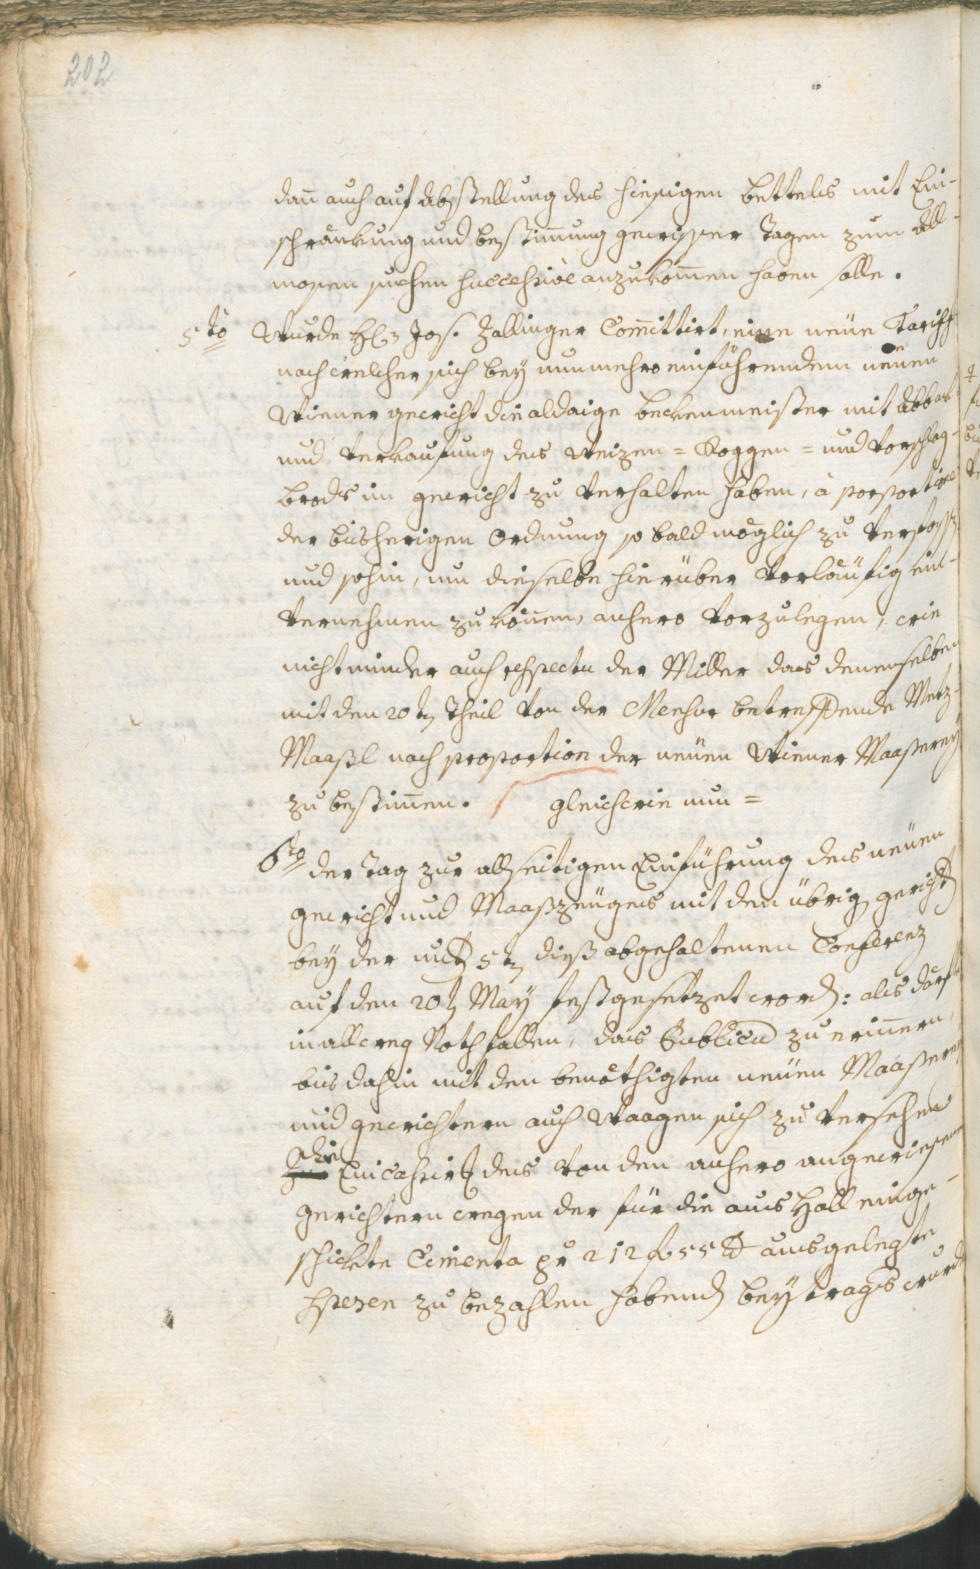 202
dañ auch auf Abstellung des hiesigen bettels mit Ein-
schränkung und bestimmung gewisser Tagen zum All-
mosen suchen successivè anzukom̄en haben solle.
5to Wurde H: Jos. Zallinger Com̄ittirt, eine neüe Tariff
nach welcher sich bey nunmehro einführendem neüen
Wiener gewicht die aldaige beckenmeister mit Abba
und Verkaufung des Weizen= Roggen= und Vorschlag-
brods im gewicht zu verhalten haben, à proportione
der bisherigen Ordnung so bald möglich zu verfass
und sohin, um dieselbe hierüber vorläufig ein-
vernehmen zu können, anhero vorzulegen, wie
nicht minder auch respectu der Miller das denenselben
mit den 20t Theil von der Mensur betreffende Metz-
Maaßl nach proportion der neüen Wiener Maaßerey
zu bestim̄en. gleichwie nun =
6to der Tag zur allseitigen Einführung des neüen
gewicht und Maaßzeügs mit den übrig gericht
bey der unt 5t dieß abgehaltenen Conferenz
auf den 20t May festgesetzet word: als durf
in all weg Nothfallen, das Publicum zu erinnern,
bis dahin mit den benöthigten neüen Maaßerey
und gewichtern auch Waagen sich zu versehen
Die Einkassier des von den anhero angewiesenen
gerichtern wegen der für die aus Hall einge-
schickte Cimenta pr 212 f 55 x ausgelegte
spesen zu bezahlen habend beytrags wurd